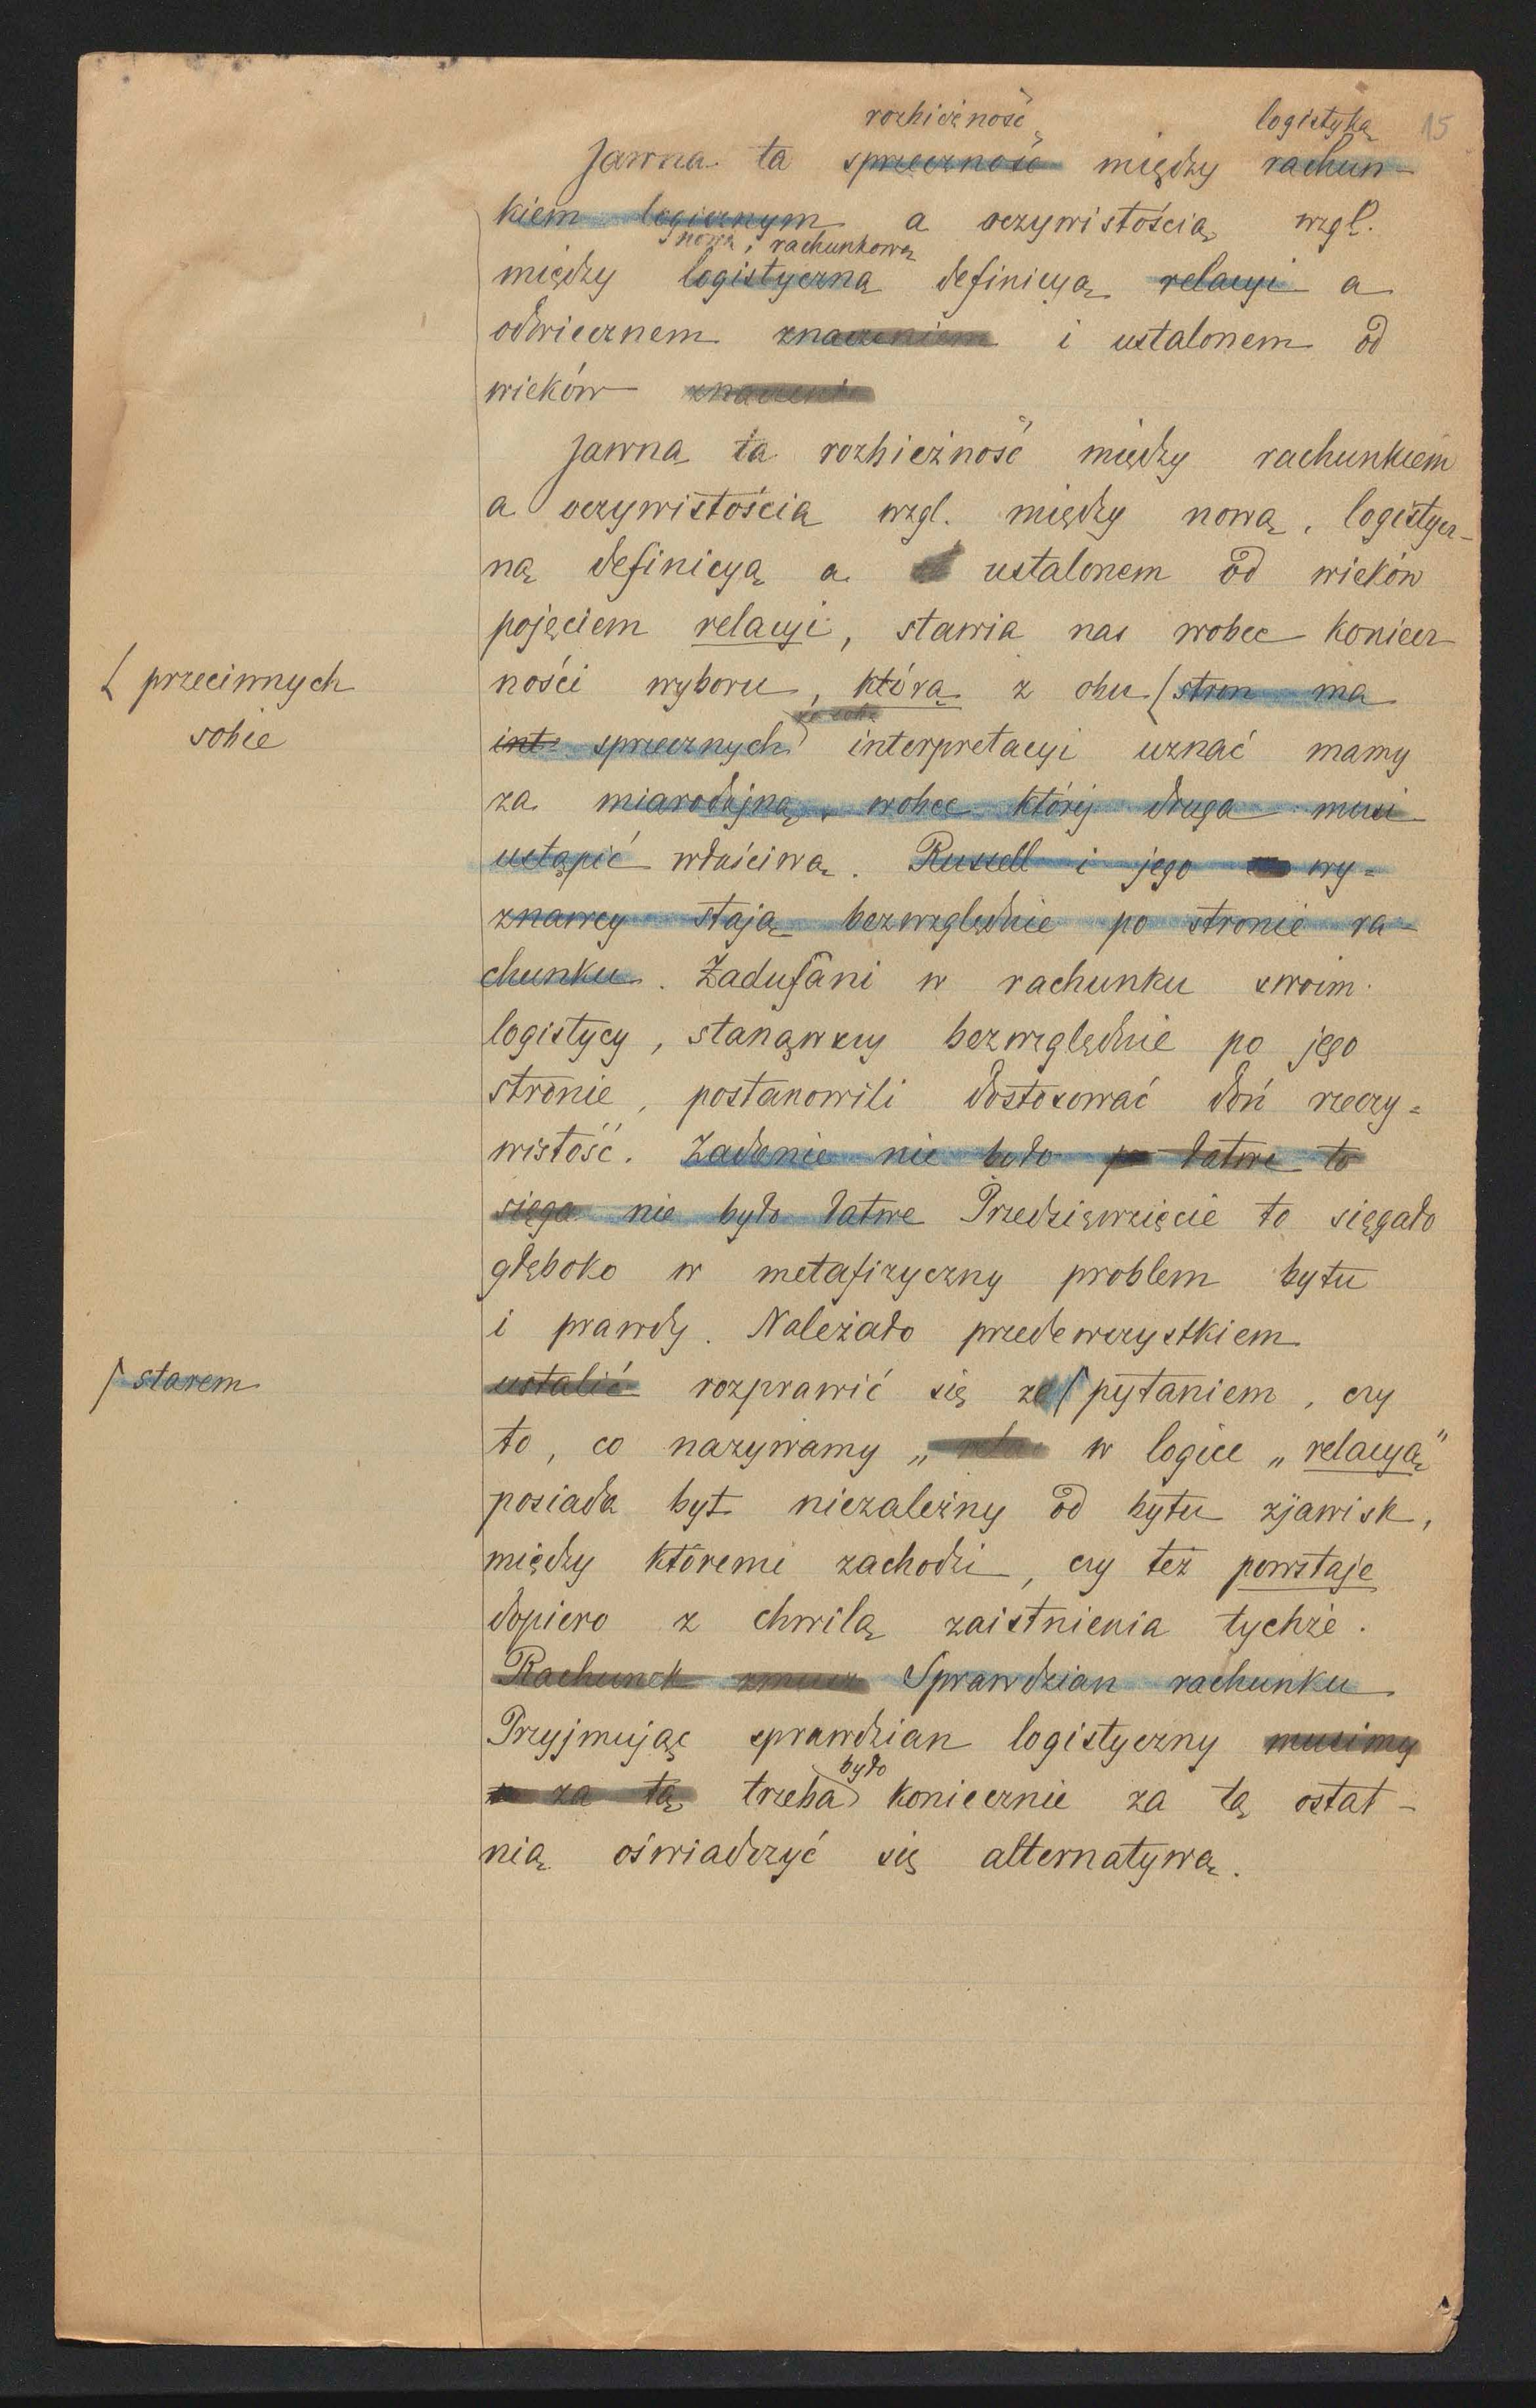 15
rozbieżność logistyką
Jawna ta sprzeczność między rachun-
kiem logicznym a oczywistością wzgl.
nową, rachunkową
między logistyczną definicyą relacyi a
odwiecznem znaczeniem i ustalonem od
wieków znaczeni
Jawna ta rozbieżność między rachunkiem
a oczywistością wzgl. między nową, logistycz-
ną definicyą a ustalonem od wieków
pojęciem relacyi, stawia nas wobec koniecz
ności wyboru, którą z obu ( stron ma
( przeciwnych
sobie
int sprzecznych interpretacyi uznać mamy
za miarodajną, wobec której druga musi
ustąpić właściwą. Russell i jego wy=
znawcy stają bezwzględnie po stronie ra-
chunku. Zadufani w rachunku swoim
logistycy, stanąwszy bezwzględnie po jego
stronie, postanowili dostosować doń rzeczy=
wistość. Zadanie nie było łatwe to
sięga nie było łatwe Przedsięwzięcie to sięgało
głęboko w metafizyczny problem bytu
i prawdy. Należało przedewszystkiem
ustalić rozprawić się ze ( pytaniem, czy
( starem
to, co nazywamy „ rela w logice „relacyą"
posiada byt niezależny od bytu zjawisk,
między któremi zachodzi, czy też powstaje
dopiero z chwilą zaistnienia tychże.
Rachunek zmusz Sprawdzian rachunku
Przyjmując sprawdzian logistyczny musimy
było
za tą trzeba koniecznie za tą ostat-
nią oświadczyć się alternatywą.